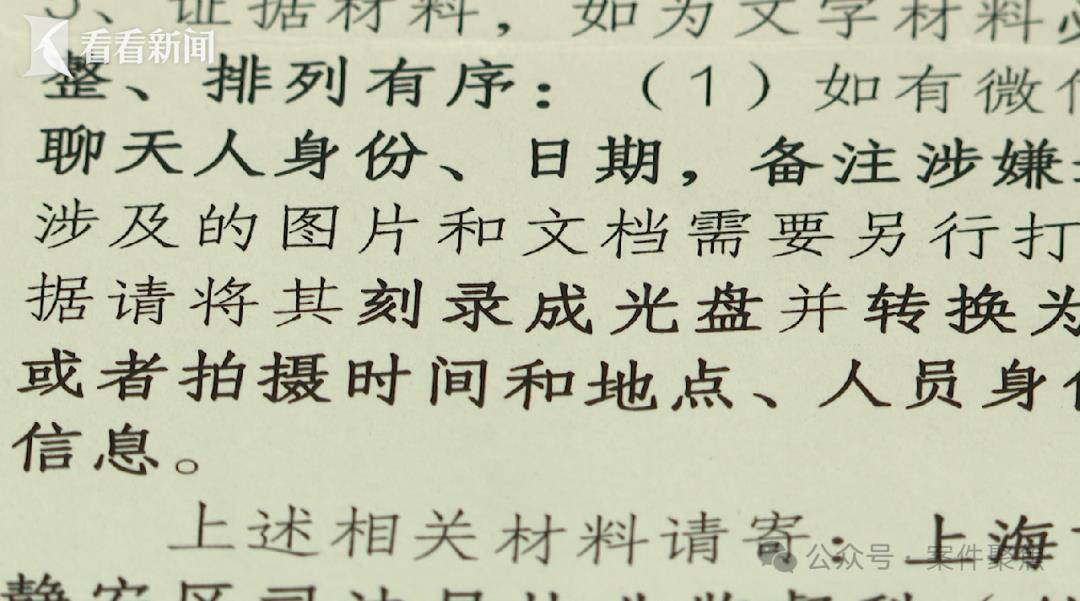 3、证据材料，如为文字材料
看看新闻
整、排列有序：（1）如有微
聊天人身份、日期，备注涉嫌
涉及的图片和文档需要另行打
据请将其刻录成光盘并转换为
或者拍摄时间和地点、人员身
信息。
上述相关材料请寄：上海
公众号·案件聚焦
静安区司法局